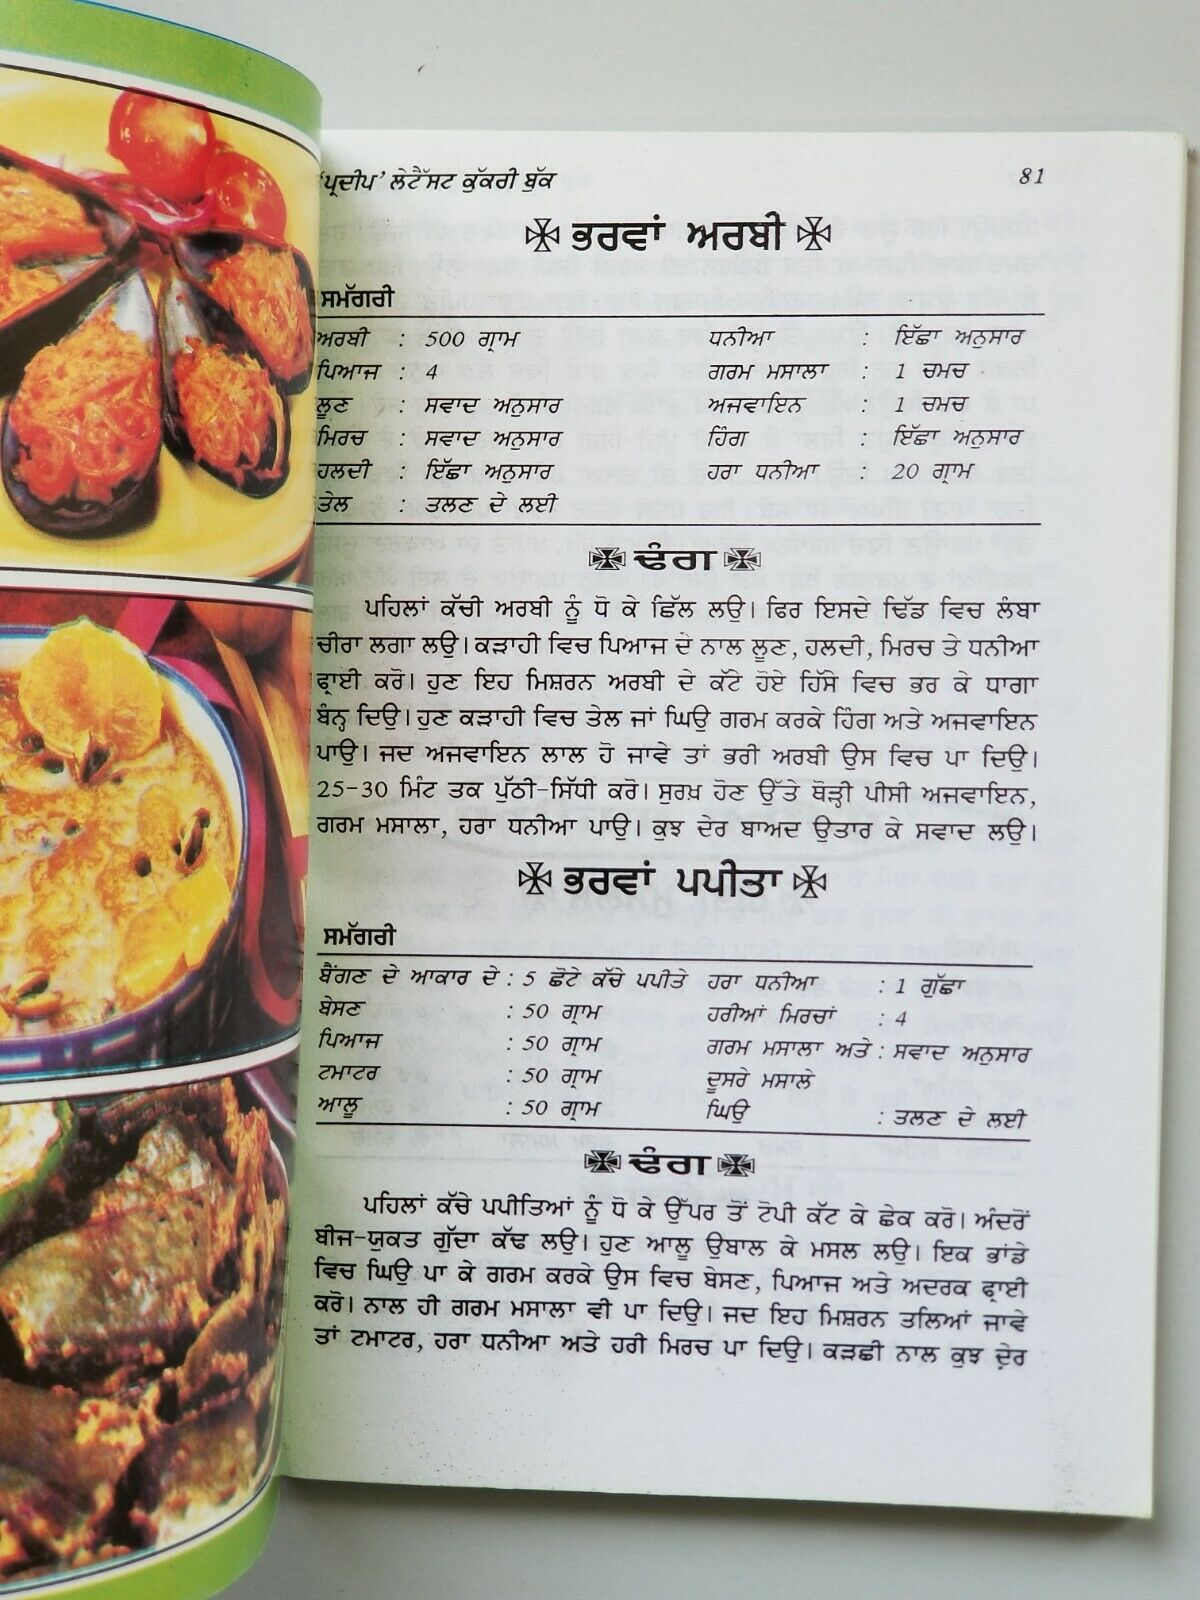 'ਪ੍ਰਦੀਪ' ਲੇਟੈਸਟ ਕੁੱਕਰੀ ਬੁੱਕ 81
ਭਰਵਾਂ ਅਰਬੀ
ਸਮੱਗਰੀ
ਅਰਬੀ : 500 ਗ੍ਰਾਮ ਧਨੀਆ : ਇੱਛਾ ਅਨੁਸਾਰ
ਪਿਆਜ : 4 ਗਰਮ ਮਸਾਲਾ : 1 ਚਮਚ
ਲੂਣ : ਸਵਾਦ ਅਨੁਸਾਰ ਅਜਵਾਇਨ : 1 ਚਮਚ
ਮਿਰਚ : ਸਵਾਦ ਅਨੁਸਾਰ ਹਿੰਗ : ਇੱਛਾ ਅਨੁਸਾਰ
ਹਲਦੀ : ਇੱਛਾ ਅਨੁਸਾਰ ਹਰਾ ਧਨੀਆ : 20 ਗ੍ਰਾਮ
ਤੇਲ : ਤਲਣ ਦੇ ਲਈ
ਢੰਗ
ਪਹਿਲਾਂ ਕੱਚੀ ਅਰਬੀ ਨੂੰ ਧੋ ਕੇ ਛਿੱਲ ਲਉ। ਫਿਰ ਇਸਦੇ ਢਿੱਡ ਵਿਚ ਲੰਬਾ
ਚੀਰਾ ਲਗਾ ਲਉ। ਕੜਾਹੀ ਵਿਚ ਪਿਆਜ ਦੇ ਨਾਲ ਲੂਣ, ਹਲਦੀ, ਮਿਰਚ ਤੇ ਧਨੀਆ
ਫ੍ਰਾਈ ਕਰੋ। ਹੁਣ ਇਹ ਮਿਸ਼ਰਨ ਅਰਬੀ ਦੇ ਕੱਟੇ ਹੋਏ ਹਿੱਸੇ ਵਿਚ ਭਰ ਕੇ ਧਾਗਾ
ਬੰਨ੍ਹ ਦਿਉ। ਹੁਣ ਕੜਾਹੀ ਵਿਚ ਤੇਲ ਜਾਂ ਘਿਉ ਗਰਮ ਕਰਕੇ ਹਿੰਗ ਅਤੇ ਅਜਵਾਇਨ
ਪਾਉ। ਜਦ ਅਜਵਾਇਨ ਲਾਲ ਹੋ ਜਾਵੇ ਤਾਂ ਭਰੀ ਅਰਬੀ ਉਸ ਵਿਚ ਪਾ ਦਿਉ।
25-30 ਮਿੰਟ ਤਕ ਪੁੱਠੀ-ਸਿੱਧੀ ਕਰੋ। ਸੁਰਖ਼ ਹੋਣ ਉੱਤੇ ਥੋੜ੍ਹੀ ਪੀਸੀ ਅਜਵਾਇਨ,
ਗਰਮ ਮਸਾਲਾ, ਹਰਾ ਧਨੀਆ ਪਾਉ। ਕੁਝ ਦੇਰ ਬਾਅਦ ਉਤਾਰ ਕੇ ਸਵਾਦ ਲਉ।
ਭਰਵਾਂ ਪਪੀਤਾ
ਸਮੱਗਰੀ
ਬੈਂਗਣ ਦੇ ਆਕਾਰ ਦੇ : 5 ਛੋਟੇ ਕੱਚੇ ਪਪੀਤੇ ਹਰਾ ਧਨੀਆ : 1 ਗੁੱਛਾ
ਬੇਸਣ : 50 ਗ੍ਰਾਮ ਹਰੀਆਂ ਮਿਰਚਾਂ : 4
ਪਿਆਜ : 50 ਗ੍ਰਾਮ ਗਰਮ ਮਸਾਲਾ ਅਤੇ : ਸਵਾਦ ਅਨੁਸਾਰ
ਟਮਾਟਰ : 50 ਗ੍ਰਾਮ ਦੂਸਰੇ ਮਸਾਲੇ
ਆਲੂ : 50 ਗ੍ਰਾਮ ਘਿਉ : ਤਲਣ ਦੇ ਲਈ
ਢੰਗ
ਪਹਿਲਾਂ ਕੱਚੇ ਪਪੀਤਿਆਂ ਨੂੰ ਧੋ ਕੇ ਉੱਪਰ ਤੋਂ ਟੋਪੀ ਕੱਟ ਕੇ ਛੇਕ ਕਰੋ। ਅੰਦਰੋਂ
ਬੀਜ-ਯੁਕਤ ਗੁੱਦਾ ਕੱਢ ਲਉ। ਹੁਣ ਆਲੂ ਉਬਾਲ ਕੇ ਮਸਲ ਲਉ। ਇਕ ਭਾਂਡੇ
ਵਿਚ ਘਿਉ ਪਾ ਕੇ ਗਰਮ ਕਰਕੇ ਉਸ ਵਿਚ ਬੇਸਣ, ਪਿਆਜ ਅਤੇ ਅਦਰਕ ਫ੍ਰਾਈ
ਕਰੋ। ਨਾਲ ਹੀ ਗਰਮ ਮਸਾਲਾ ਵੀ ਪਾ ਦਿਉ। ਜਦ ਇਹ ਮਿਸ਼ਰਨ ਤਲਿਆਂ ਜਾਵੇ
ਤਾਂ ਟਮਾਟਰ, ਹਰਾ ਧਨੀਆ ਅਤੇ ਹਰੀ ਮਿਰਚ ਪਾ ਦਿਉ। ਕੜਛੀ ਨਾਲ ਕੁਝ ਦੇਰ